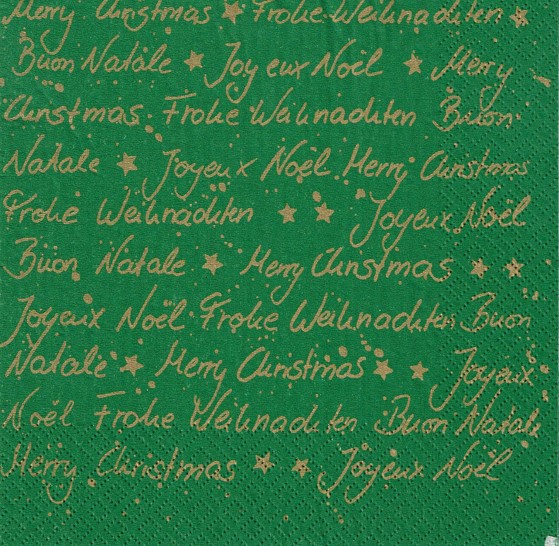 Merry Christmas ★ Frohe Weihnachten ★
Buon Natale ★ Joyeux Noël ★ Merry
Christmas Frohe Weihnachten Buon
Natale ★ Joyeux Noël Merry Christmas
Frohe Weihnachten ★ ★ Joyeux Noël
Buon Natale ★ Merry Christmas ★ ★
Joyeux Noël Frohe Weihnachten Buon
Natale ★ Merry Christmas ★ ★ Joyeux
Noël Frohe Weihnachten Buon Natale
Merry Christmas ★ ★ Joyeux Noël